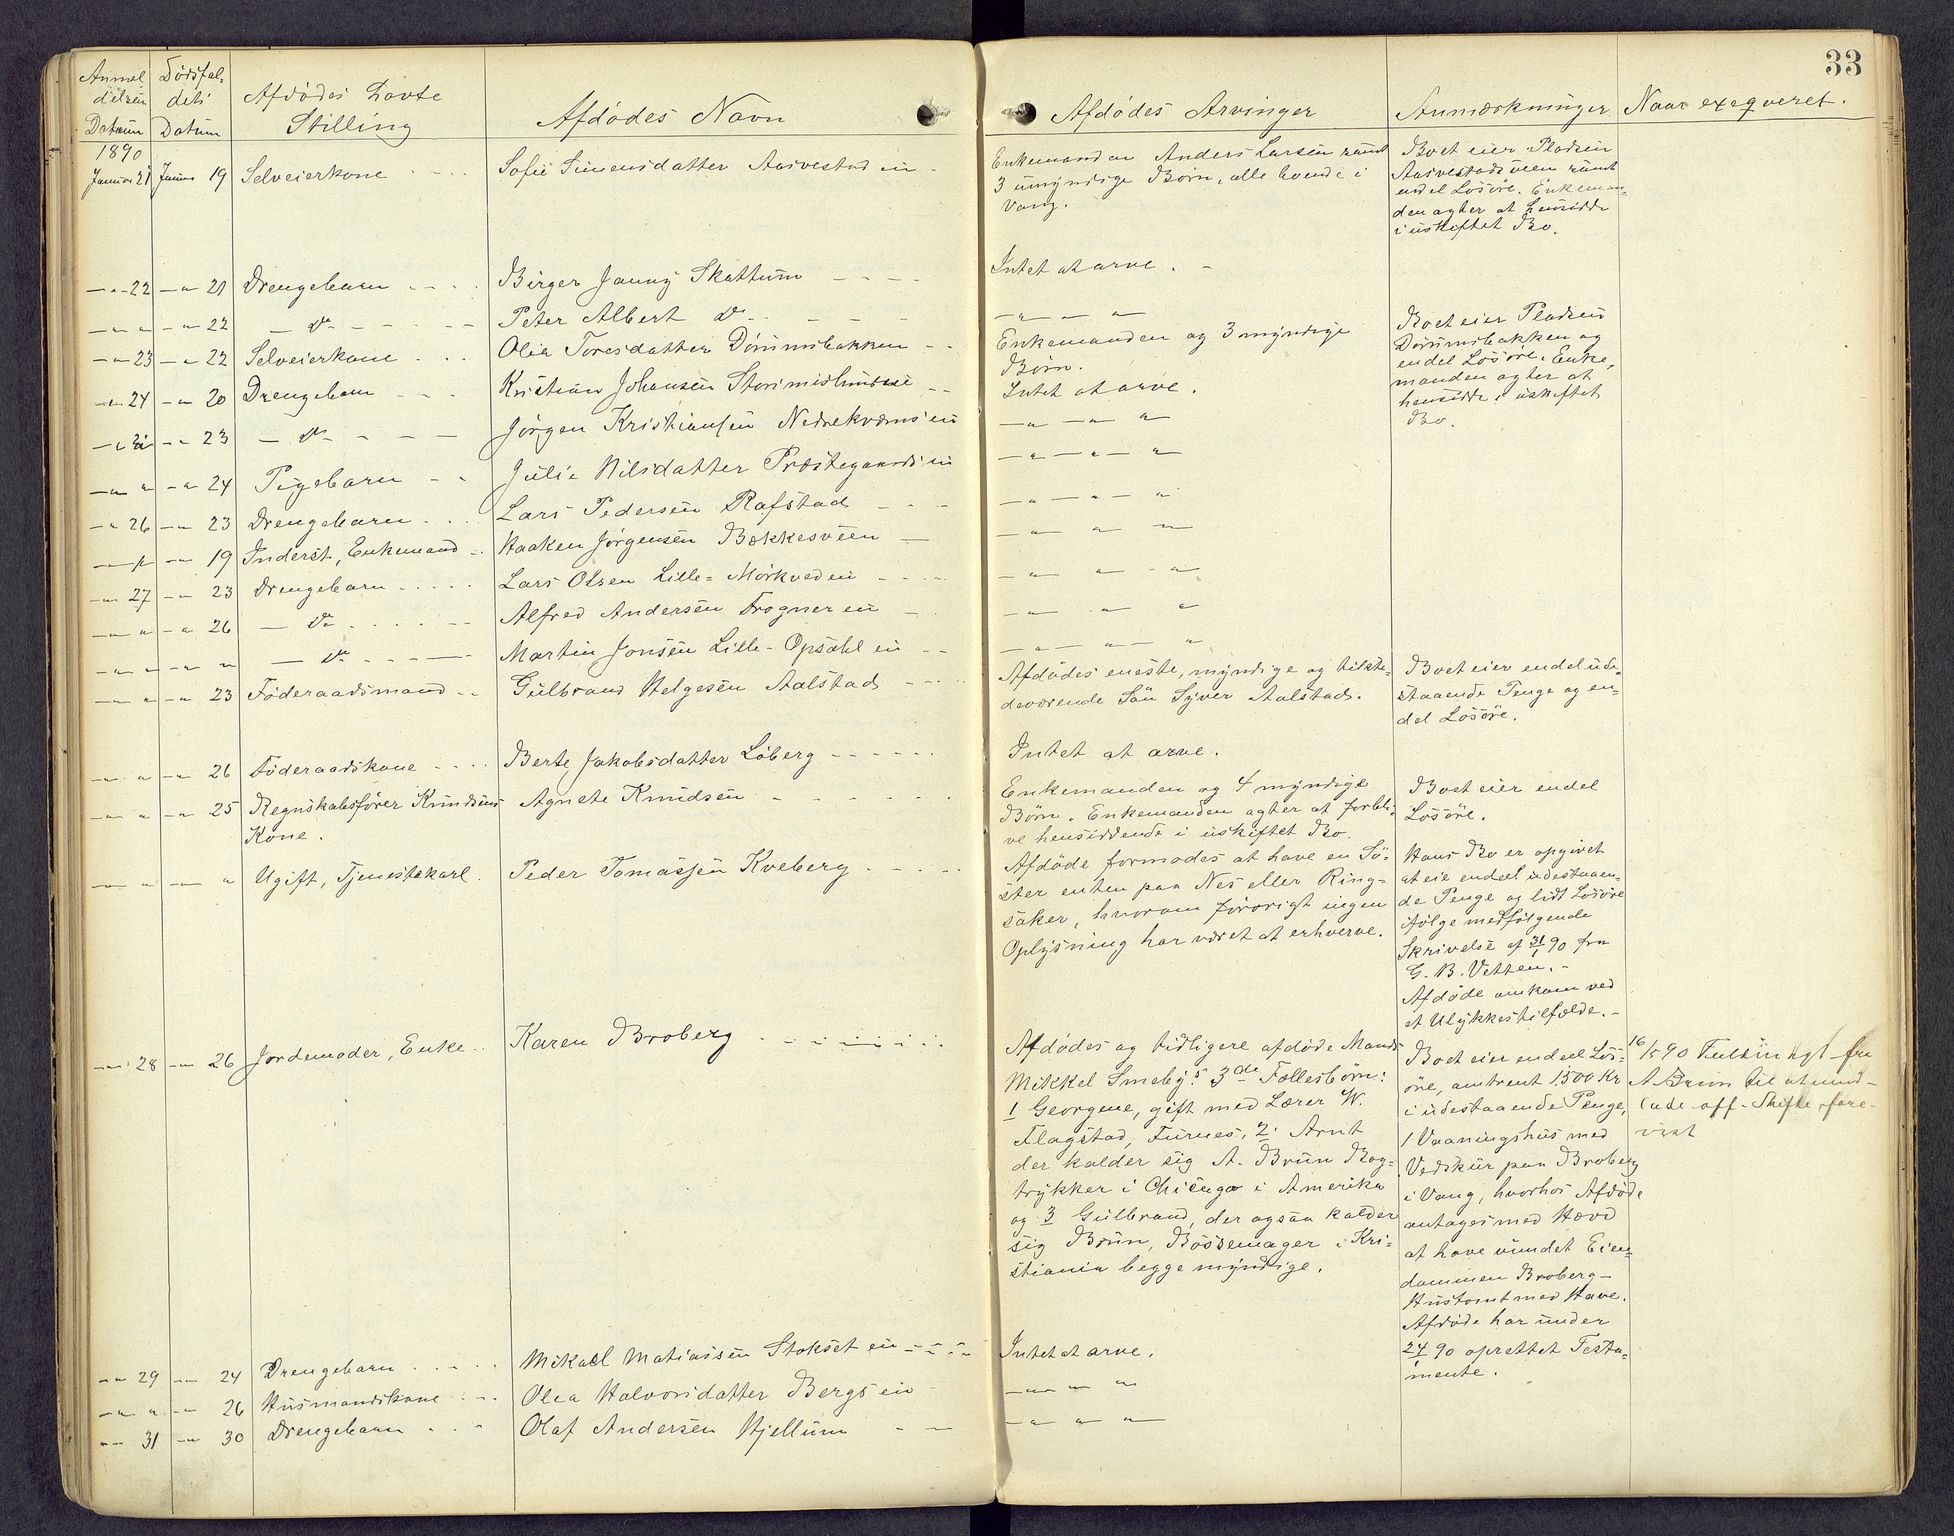 33
Anmel
delsen
Datum
Dødsfal-
dets
Datum
Afdødes Stilling
Afdødes Navn
Afdødes Arvinger
Anmærkninger
Naar exeqveret.
1890
Januar 21 Januar 19 Selveierkone Sofie Simensdatter Aasvestad
Enkemanden Anders Larsen samt
3 umyndige Børn, alle boende i
Vang.
Boet eier Pladsen
Aasvestadsveen samt
endel Løsøre. Enkeman-
den agter at hensidde
i uskiftet Bo.
—"— 22 —"— 21 Drengebarn Birger Janny Skattum
Intet at arve.
—"— " —"— 22 — do — Peter Albert do
—"—"—"
—"— 23 —"— 22 Selveierkone Olia Toresdatter Dørumsbakken
Enkemanden og 3 myndige
Børn.
Boet eier Pladsen
Dørumsbakken og
endel Løsøre. Enke,
manden agter at
hensidde i uskiftet
Bo.
—"— 24 —"— 20 Drengebarn Kristian Johansen
Intet at arve.
—"— —"— 23 — do — Jørgen Kristiansen Nedrekværnsen
—"—"—"
—"— " —"— 24 Pigebarn Julie Nilsdatter Præstegaardsen
—"—"—"
—"— 26 —"— 23 Drengebarn Lars Pedersen Rafstad
—"—"—"
—"— " —"— 19 Inderst, Enkemand Haaken Jørgensen Bækkesveen
—"—"—"
—"— 27 —"— 23 Drengebarn Lars Olsen Lille-Mørkveden
—"—"—"
—"— " —"— 26 — do — Alfred Andersen Trogneren
—"—"—"
—"— " —"— " — do — Martin Jonsen Lille-Opsahl en
—"—"—"
—"— " —"— 23 Föderaadsmand Gulbrand Helgesen Aalstad
Afdødes eneste, myndige og tilste-
deværende Sön Syver Aalstad.
Boet eier endel ude-
staaende Penge og en-
del Løsøre.
—"— " —"— 26 Föderaadskone Berte Jakobsdatter Løberg
Intet at arve.
—"— " —"— 25 Regnskabsfører Knudsens
Kone.
Agnete Knudsen
Enkemanden og 4 myndige
Børn. Enkemanden agter at forbli-
ve hensiddende i uskiftet Bo.
Boet eier endel
Løsøre.
—"— " —"— " Ugift, Tjenestekarl. Peder Tomassen Kveberg
Afdøde formodes at have en Sö-
ster enten paa Nes eller Ring-
saker, hvorom forøvrigt ingen
Oplysning har været at erhverve.
Hans Bo er opgivet
at eie endeel udestaaen-
de Penge og lidt Løsøre
ifølge medfølgende
Skrivelse af 31/1 90 fra
G. B. Vetten.-
Afdøde omkom ved
et Ulykkestilfælde.-
—"— 28 —"— 26 Jordemoder, Enke Karen Broberg
Afdødes og tidligere afdøde Mands
Mikkel Smebys 3de Fællesbørn:
1 Georgene, gift med Lærer W.
Flagstad, Furnes, 2. Arnt
der kalder sig A. Brun Bog-
trykker i Chicago i Amerika
og 3 Gulbrand, der ogsaa kalder
sig Brun, Bössemager i Kri-
stiania begge myndige.
Boet eier endeel Løs-
øre, omtrent 1500 Kr
i udestaaende Penge,
1 Vaaningshus med
Vedskur paa Broberg
i Vang, hvorhos Afdøde
antages med Hævd
at have vundet Eien-
dommen Broberg-
Hustomt med Have.
Afdøde har under
24/1 90 oprettet Testa-
mente.
16/5 90 fra
A Brun til at
off. Skifte fore-
vist
—"— 29 —"— 24 Drengebarn Mikael Matiassen Stokset en
Intet at arve.
—"— " —"— 26 Husmandskone Olea Halvorsdatter Bergsen
—"—"—"
—"— 31 —"— 30 Drengebarn Olaf Andersen Hjellum
—"—"—"